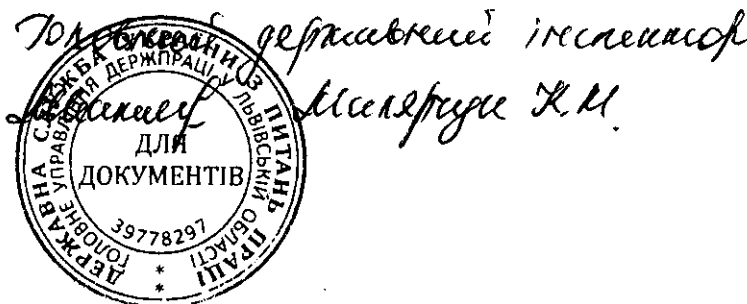 Головний державний інспектор
Малярчук К.М.
ДЕРЖАВНА СЛУЖБА УКРАЇНИ З ПИТАНЬ ПРАЦІ
ГОЛОВНЕ УПРАВЛІННЯ ДЕРЖПРАЦІ У ЛЬВІВСЬКІЙ ОБЛАСТІ
ДЛЯ
ДОКУМЕНТІВ
39778297